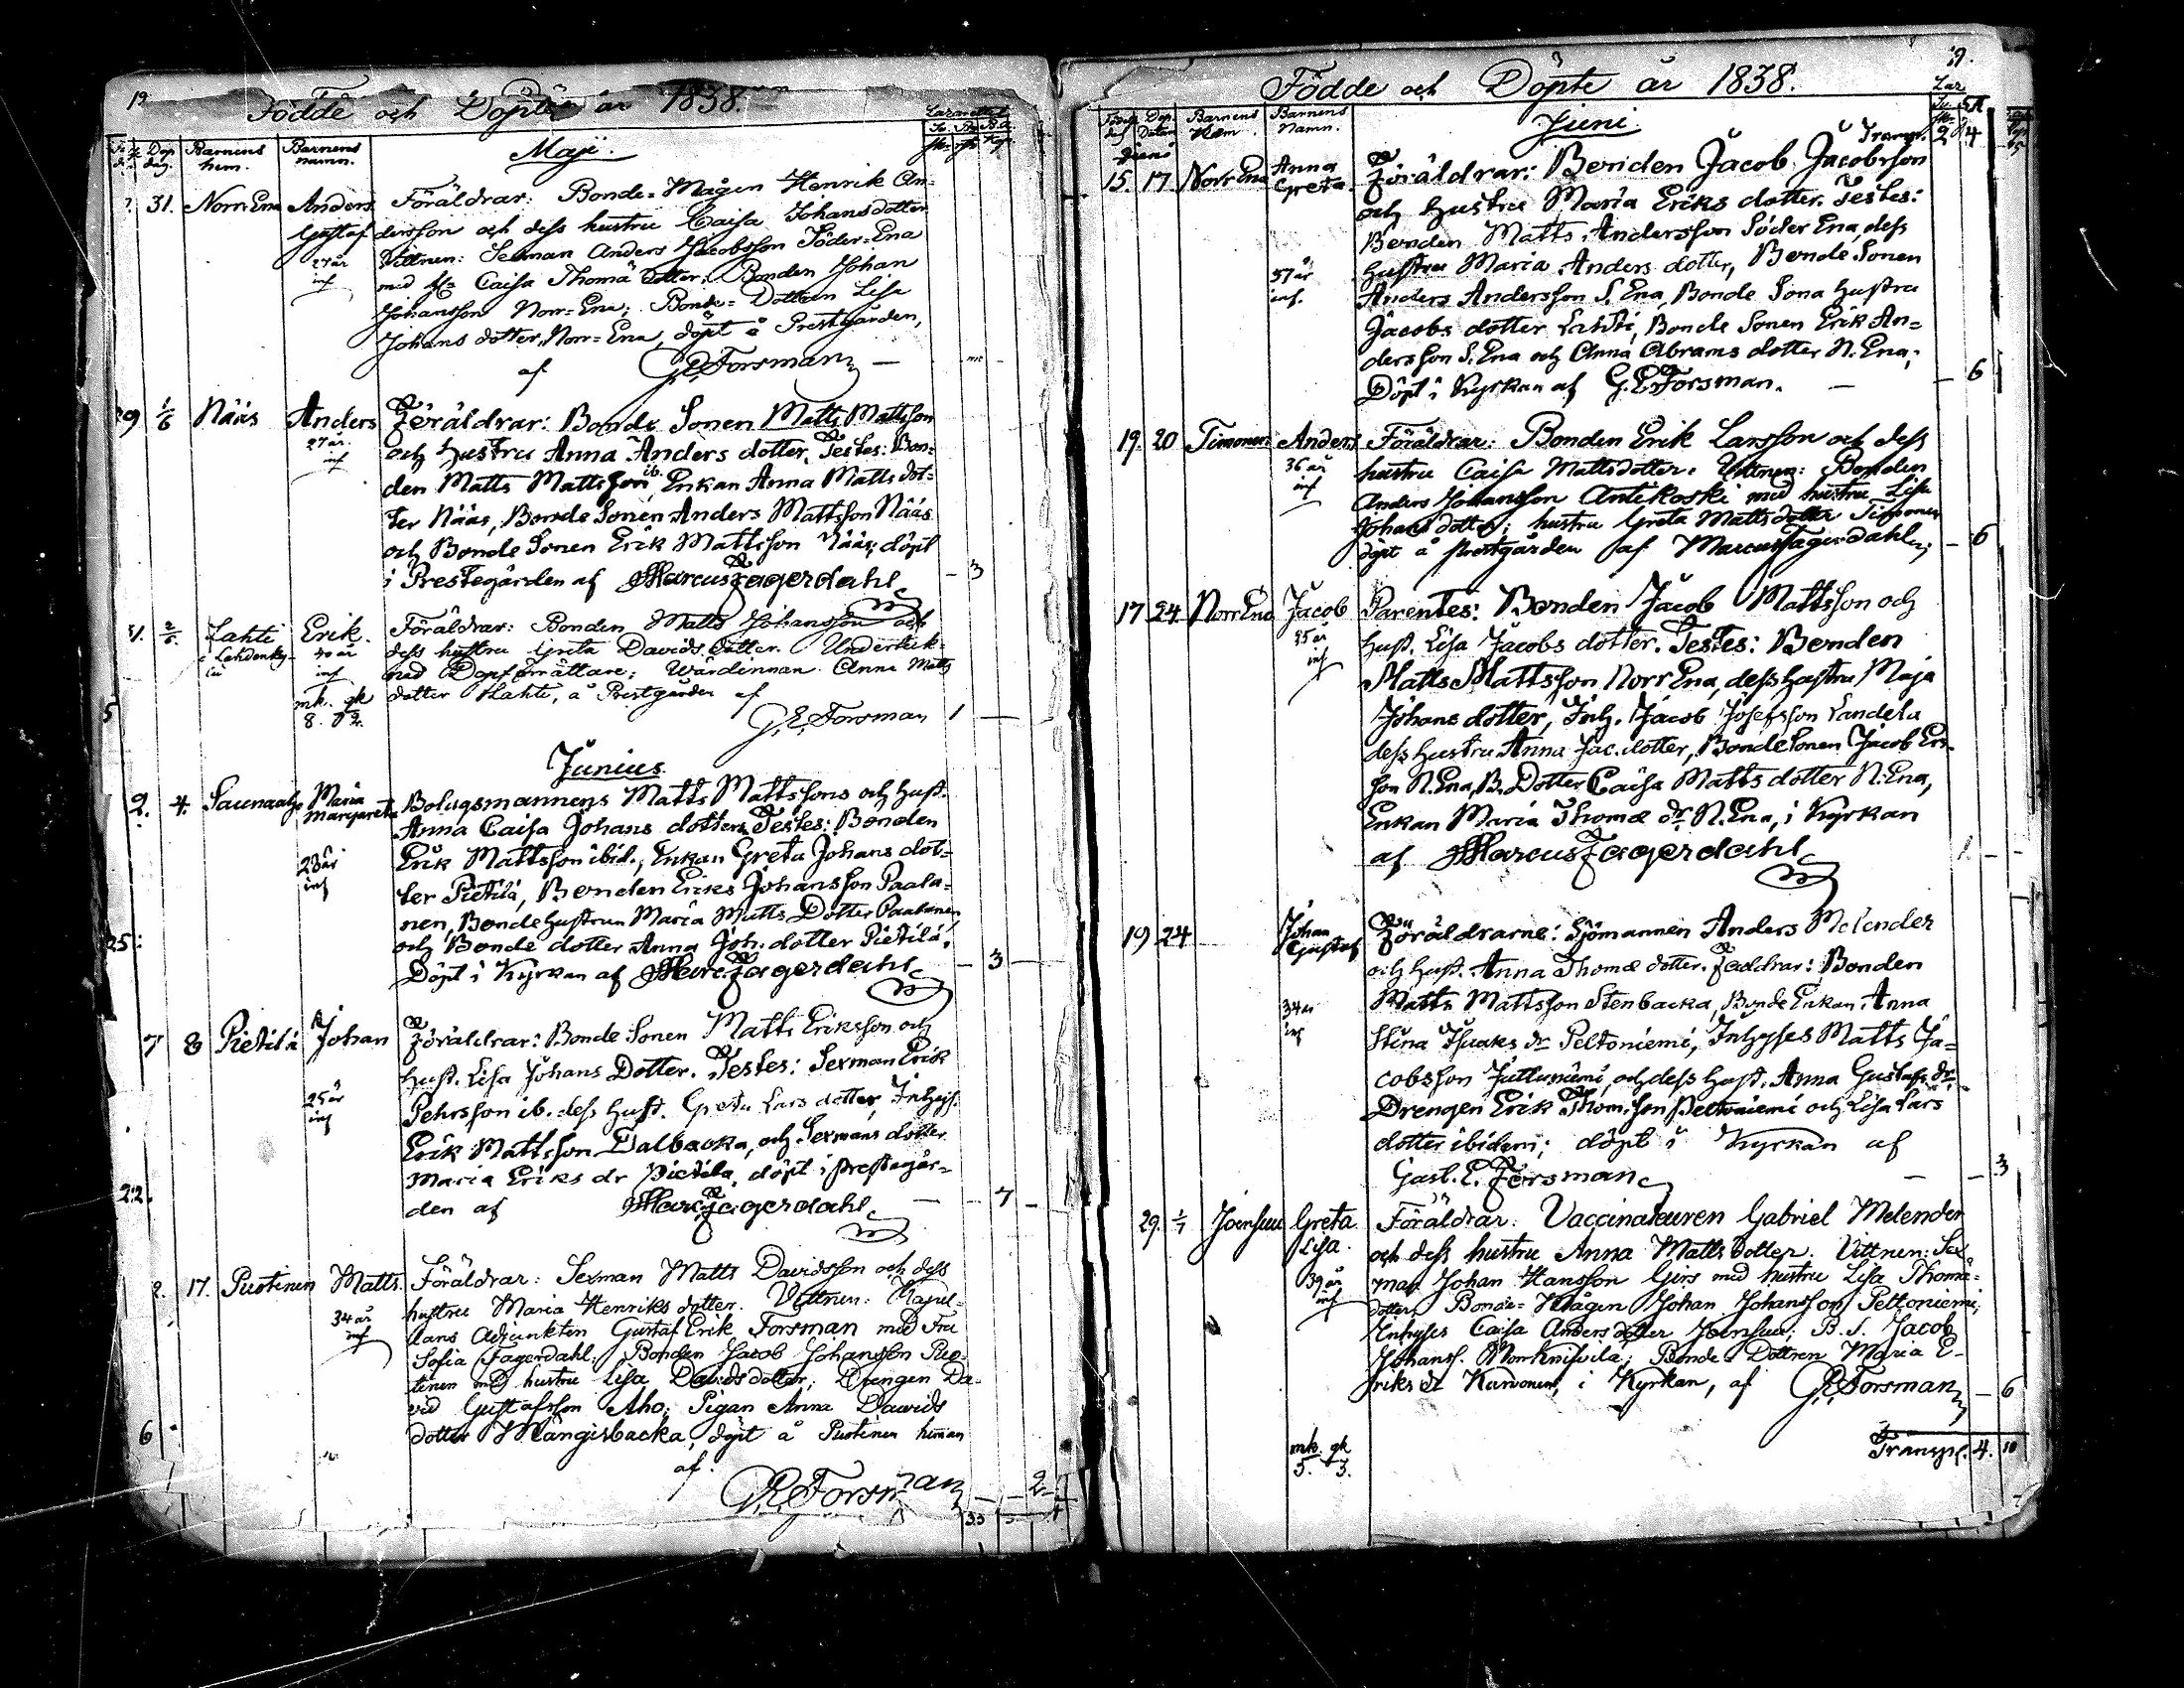 19
Födde och Döpte år 1838.
Döp dag. Barnens hem. Barnens namn. Maji. Lazarettet
31. Norr Ena Anders Gustaf 27 år inf
Föräldrar: Bonde-Mågen Henrik An-
dersson och dess hustru Caisa Johansdotter
Vittnen: Sexman Anders Jacobsson Söder-Ena
med h. Caisa Thomä dotter; Bonden Johan
Johansson Norr-Ena; Bonde-Dottren Lisa
Johans dotter, Norr-Ena, döpt å Prestgården,
af G.E. Forsman
29 1/6 Nääs Anders 27 år inf
Föräldrar: Bonde Sonen Matts Mattsson
och hustru Anna Anders dotter. Testes: Bon-
den Matts Mattsson ib. Enkan Anna Matts dot-
ter Nääs, Bonde Sonen Anders Mattsson Nääs
och Bonde Sonen Erik Mattsson Nääs; döpt
i Prestegården af Marcus Fagerdahl — 3
31. 2/6. Lahti Erik. 40 år inf
mk. qk
8. 12.
Föräldrar: Bonden Matts Johansson och
dess hustru Greta Davids dotter. Underteck-
nad Dopförrättare; Wärdinnan Anna Matts
dotter Lahti, å Prestgården af
G.E. Forsman 1 —
Junius
2. 4. Saunaaho Maria Margareta 23 år inf
Bolagsmannens Matts Mattssons och hust.
Anna Caisa Johans dotters Testes: Bonden
Erik Mattsson ibid., Enkan Greta Johans dot-
ter Pietilä, Bonden Eriks Johansson Paala-
nen, Bonde hustrun Maria Matts Dotter Paalanen
och Bonde dotter Anna Joh. dotter Pietilä.
Döpt i Kyrkan af Marc. Fagerdahl — 3 —
7 8 Pietilä Johan 25 år inf
Föräldrar: Bonde Sonen Matts Eriksson och
Hust. Lisa Johans Dotter. Testes: Sexman Erik
Pehrsson ib. dess hust. Greta Lars dotter, Inhys.
Erik Mattsson Dalbacka, och Sexmans dotter
Maria Eriks dr Pietilä, döpt i prestegår-
den af Marc. Fagerdahl — 7 —
17. Puotinen Matts. 34 år inf
Föräldrar: Sexman Matts Davidsson och dess
hustru Maria Henriks dotter. Vittnen: Kapel-
lans Adjunkten Gustaf Erik Forsman med Fru
Sofia Fagerdahl; Bonden Jacob Johansson Puo-
tinen med hustru Lisa Davids dotter; Drengen Da-
vid Gustafsson Aho; Pigan Anna Davids
dotter Mångsbacka, döpt å Puotinen heman
af.
G.E. Forsman — 2
19.
Födde och Döpte år 1838.
Barnens Hem. Barnens Namn. Juni Transp. 2 4
15. 17 Norr Ena Anna Greta 37 år inf.
Föräldrar: Bonden Jacob Jacobsson
och hustru Maria Eriks dotter. Testes:
Bonden Matts Andersson Söder Ena, dess
hustru Maria Anders dotter, Bonde Sonen
Anders Andersson S. Ena, Bonde Sona hustru
Jacobs dotter Lahti, Bonde Sonen Erik An-
dersson S. Ena och Anna Abrams dotter N. Ena;
Döpt i Kyrkan af G.E. Forsman. — 6
19. 20 Timonen Anders 36 år inf
Föräldrar: Bonden Erik Larsson och dess
hustru Caisa Mattsdotter. Vittnen: Bonden
Anders Johansson Antikoski med hustru Lisa
Johans dotter; hustru Greta Matts dotter Timonen
döpt å prestgården af Marcus Fagerdahl. — 6
17 24 Norr Ena Jacob 35 år inf
Parentes: Bonden Jacob Mattsson och
hust. Lisa Jacobs dotter. Testes: Bonden
Matts Mattsson Norr Ena, dess hustru Maja
Johans dotter, Inh. Jacob Josefsson Landela
dess hustru Anna Jac. dotter, Bonde Sonen Jacob Ers-
son N. Ena, B. Dotter Caisa Matts dotter N. Ena,
Enkan Maria Thomæ dr. N. Ena, i Kyrkan
af Marcus Fagerdahl 1 —
19 24 Johan Gustaf 34 år inf
Föräldrarne: Sjömannen Anders Melender
och hust. Anna Thomæ dotter. Faddrar: Bonden
Matts Mattsson Stenbacka, Bonde Enkan Anna
Stina Isaaks dr Peltoniemi, Inhyses Matts Ja-
cobsson Juttuniemi, och dess hust. Anna Gustafs dr.
Drengen Erik Thom.son Peltoniemi och Lisa Lars
dotter ibidem; döpt i Kyrkan af
Gust. E. Forsman — 3
29. 1/7 Joensuu Greta Lisa. 39 år inf
Föräldrar: Vaccinateuren Gabriel Melender
och dess hustru Anna Matts dotter. Vittnen: Sex-
man Johan Hansson Girs med hustru Lisa Thomä-
dotter; Bonde-Mågen Johan Johansson Peltoniemi;
Inhyses Caisa Anders dotter Joensuu; B. S. Jacob
Johanss. Norr Knivilä; Bonde-Dottren Maria E-
riks dr Karvonen, i Kyrkan, af G.E. Forsman — 6
mk. qk
5. 3.
Transp. 4. 10